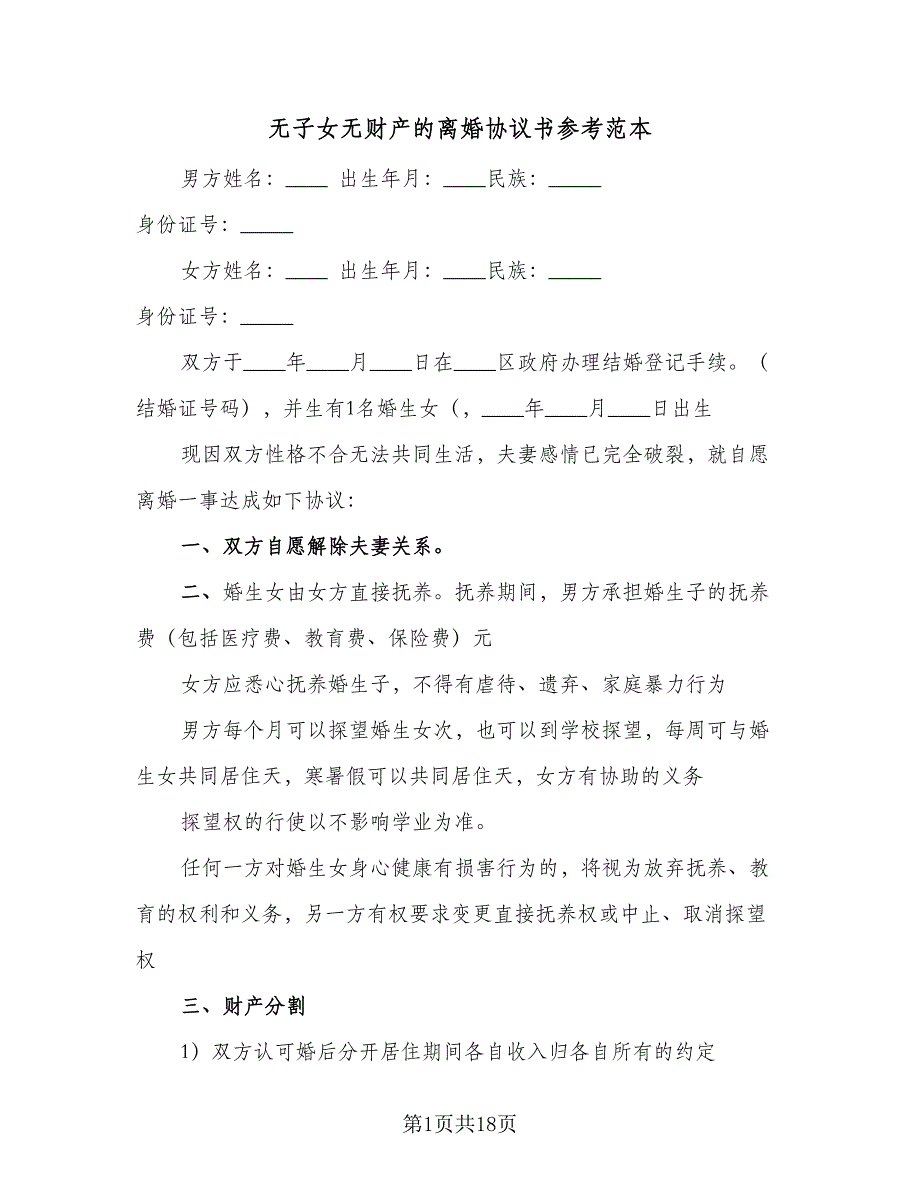 无子女无财产的离婚协议书参考范本
男方姓名：____ 出生年月：____民族：_____
身份证号：_____
女方姓名：____ 出生年月：____民族：_____
身份证号：_____
双方于____年____月____日在____区政府办理结婚登记手续。（
结婚证号码），并生有1名婚生女（，____年____月____日出生
现因双方性格不合无法共同生活，夫妻感情已完全破裂，就自愿
离婚一事达成如下协议：
一、双方自愿解除夫妻关系。
二、婚生女由女方直接抚养。抚养期间，男方承担婚生子的抚养
费（包括医疗费、教育费、保险费）元
女方应悉心抚养婚生子，不得有虐待、遗弃、家庭暴力行为
男方每个月可以探望婚生女次，也可以到学校探望，每周可与婚
生女共同居住天，寒暑假可以共同居住天，女方有协助的义务
探望权的行使以不影响学业为准。
任何一方对婚生女身心健康有损害行为的，将视为放弃抚养、教
育的权利和义务，另一方有权要求变更直接抚养权或中止、取消探望
权
三、财产分割
1）双方认可婚后分开居住期间各自收入归各自所有的约定
第1页共18页